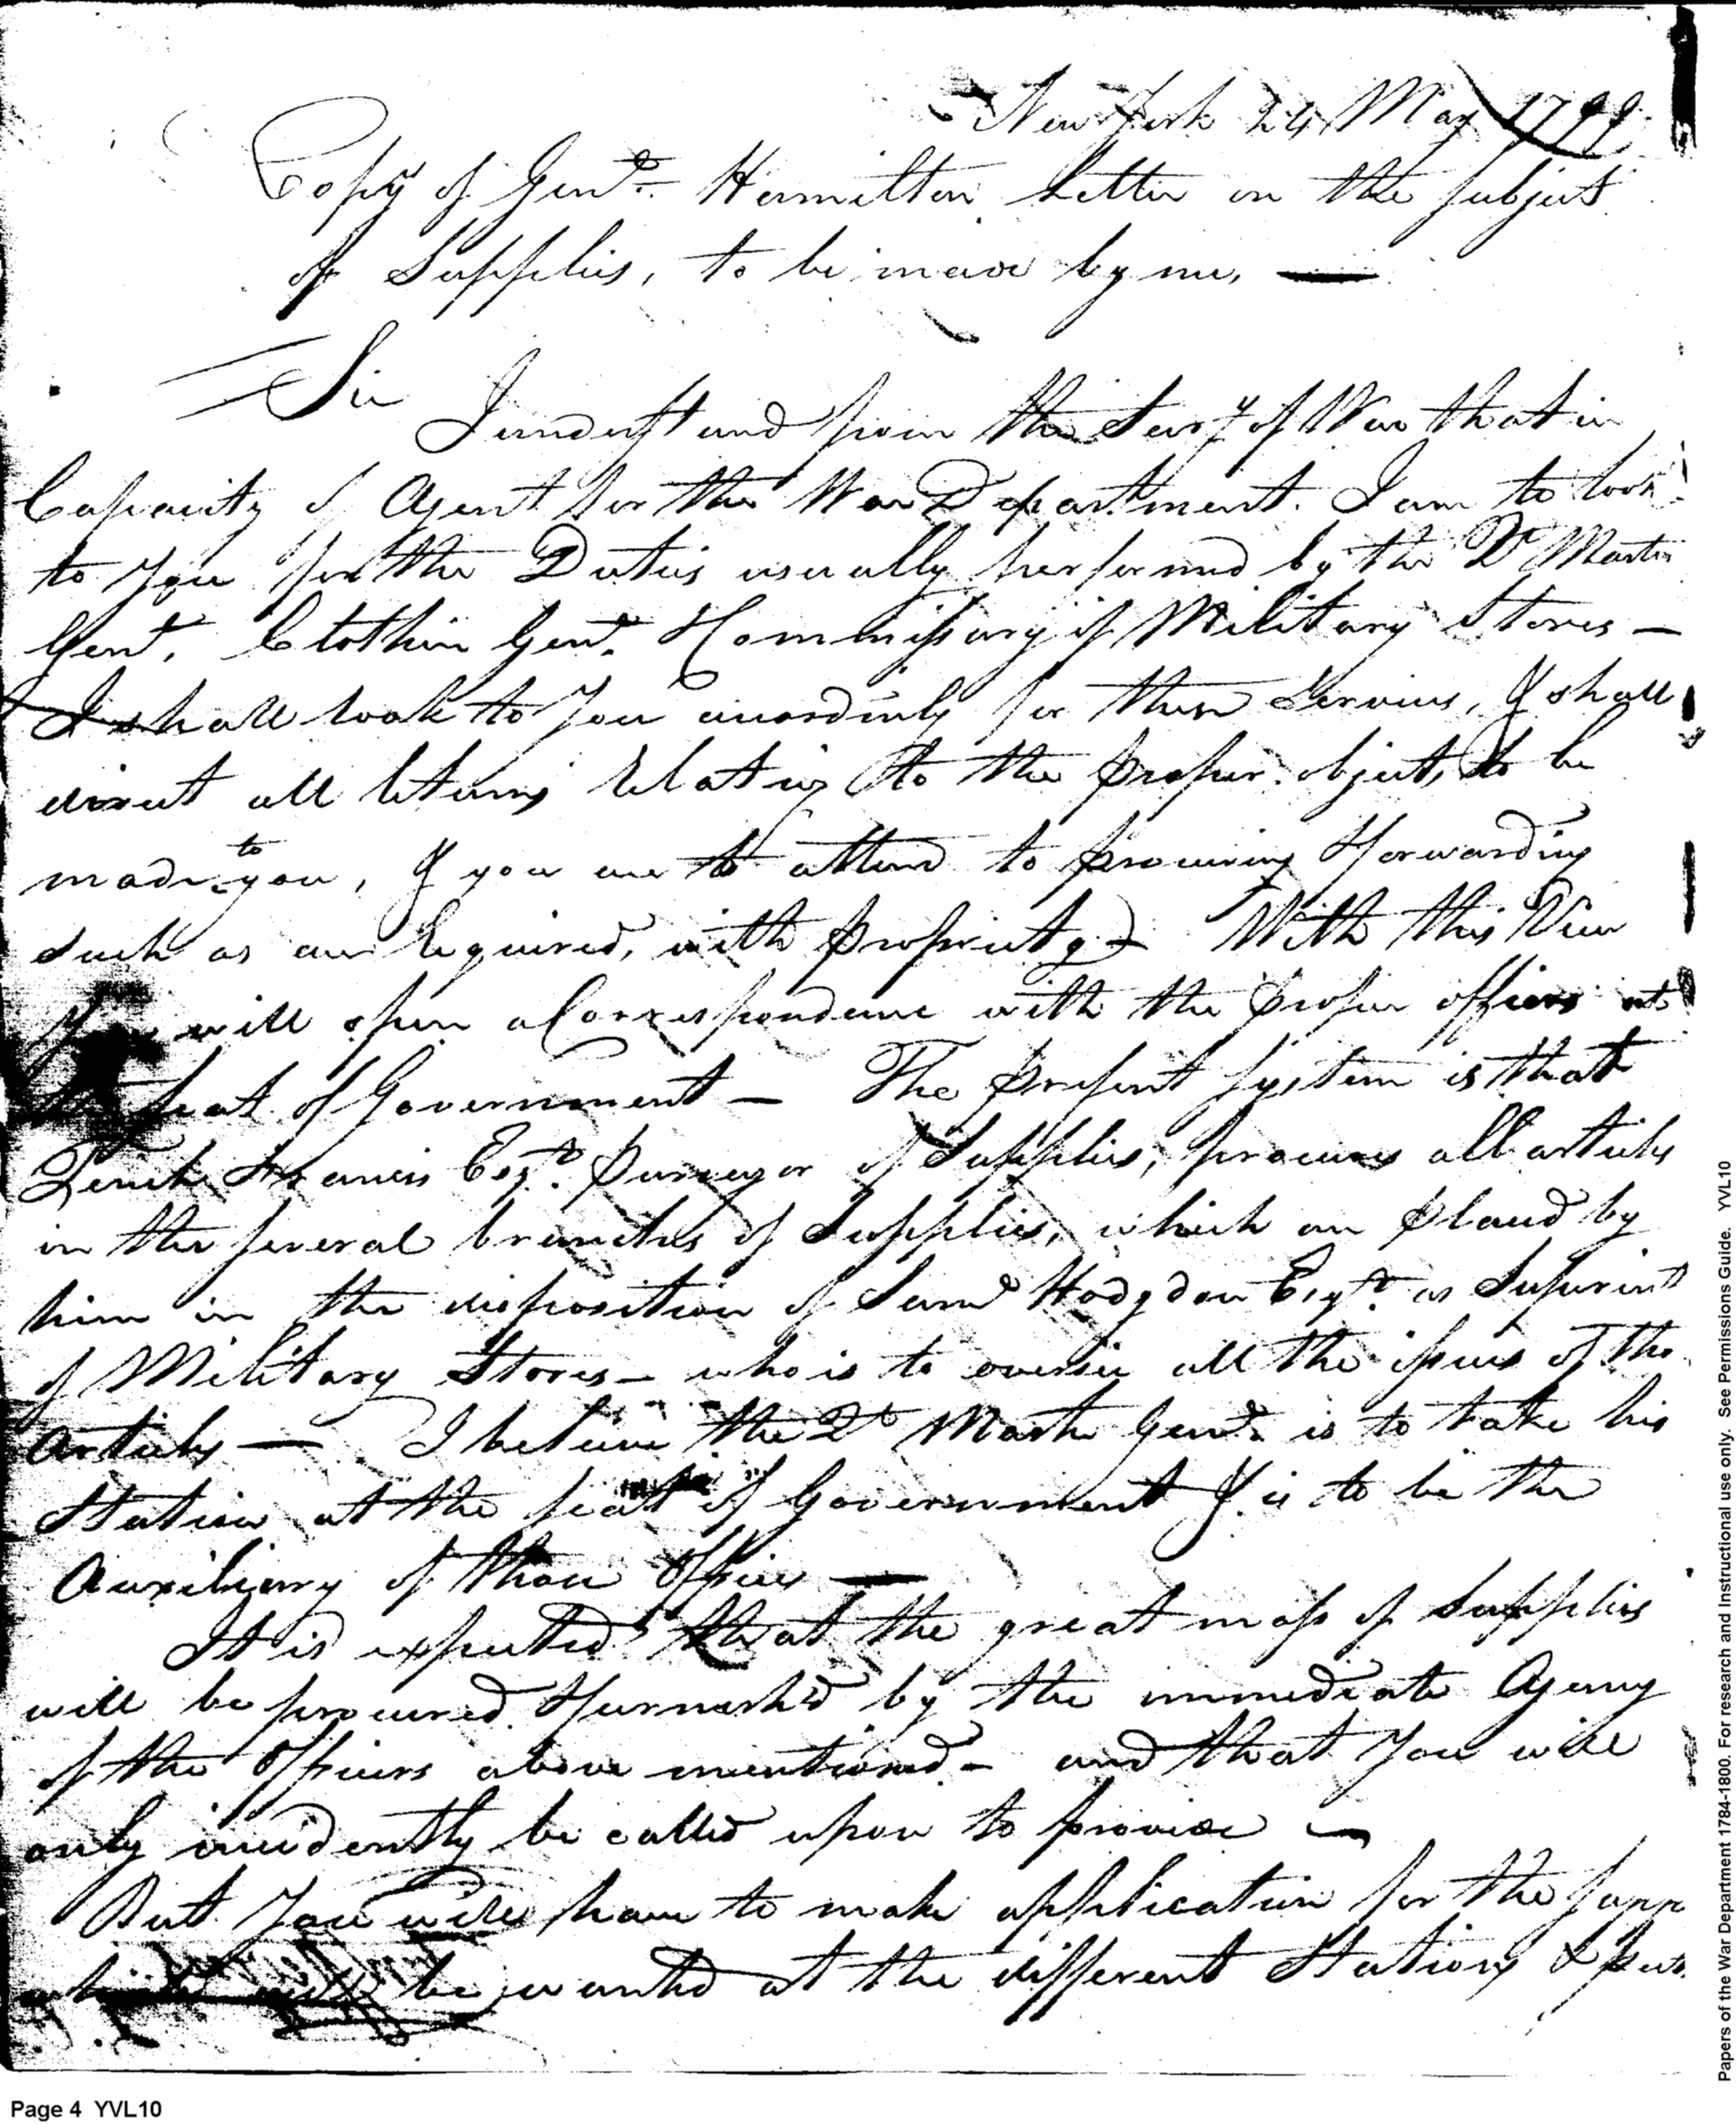 New York 24 May 1799
Copy of Genl. Hamilton Letter on the subject
of Supplies, to be made by me, —
Sir
I understand from the Secry of War that in
Capacity of Agent for the War Department. I am to look
to You for the Duties usually performed by the Qr Master
Genl. Clothier Genl. & Commissary of Military Stores —
I shall look to You accordingly for these Services, & shall
direct all returns relating to the proper objects, to be
made to you, & you are to attend to procuring & forwarding
such as are required, with propriety With this View
You will open a Correspondence with the proper officers at
the seat of Government — The present system is that
Tench Francis Esqr. purveyor of Supplies, procures all articles
in the several branches of Supplies, which are placed by
him in the disposition of Saml Hodgdon Esqr. as Superint
of Military Stores — who is to oversee all the issues of the
articles — I believe the Qr Mastr Genl. is to take his
Station at the seat of Government & is to be the
Auxiliary of those Offices —
It is expected that the great mass of Supplies
will be procured & furnish'd by the immediate Agency
of the Officers above mentioned — and that You will
only incidently be called upon to provide —
But You will have to make application for the
be wanted at the different Stations &
Page 4 YVL10
Papers of the War Department 1784-1800. For research and Instructional use only. See Permissions Guide. YVL10